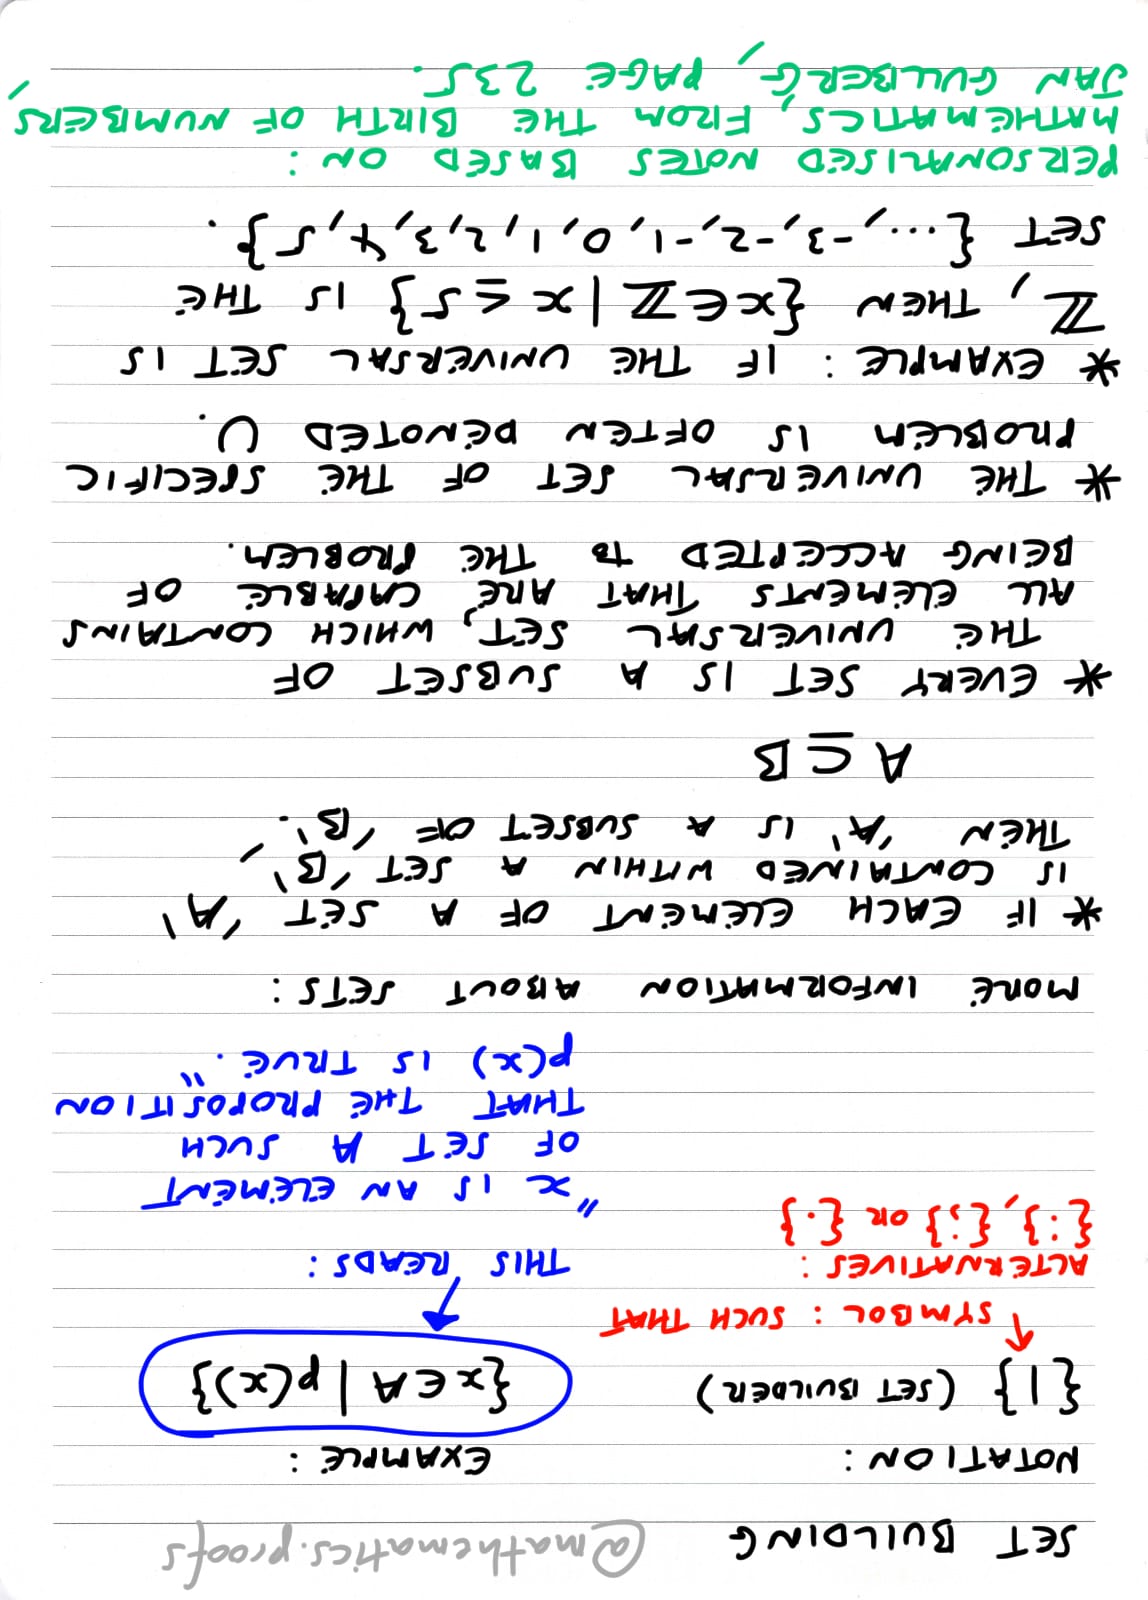 SET BUILDING @mathematics.proofs
NOTATION:
{|} (SET BUILDER)
SYMBOL: SUCH THAT
ALTERNATIVES:
{:}, {;} OR {.}
EXAMPLE:
{x∈A | p(x)}
THIS READS:
"x IS AN ELEMENT
OF SET A SUCH
THAT THE PROPOSITION
p(x) IS TRUE."
MORE INFORMATION ABOUT SETS:
* IF EACH ELEMENT OF A SET 'A'
IS CONTAINED WITHIN A SET 'B',
THEN 'A' IS A SUBSET OF 'B'.
A ⊆ B
* EVERY SET IS A SUBSET OF
THE UNIVERSAL SET, WHICH CONTAINS
ALL ELEMENTS THAT ARE CAPABLE OF
BEING ACCEPTED TO THE PROBLEM.
* THE UNIVERSAL SET OF THE SPECIFIC
PROBLEM IS OFTEN DENOTED U.
* EXAMPLE: IF THE UNIVERSAL SET IS
ℤ, THEN {x∈ℤ | x ≤ 5} IS THE
SET {..., -3, -2, -1, 0, 1, 2, 3, 4, 5}.
PERSONALISED NOTES BASED ON:
MATHEMATICS, FROM THE BIRTH OF NUMBERS,
JAN GULLBERG, PAGE 235.